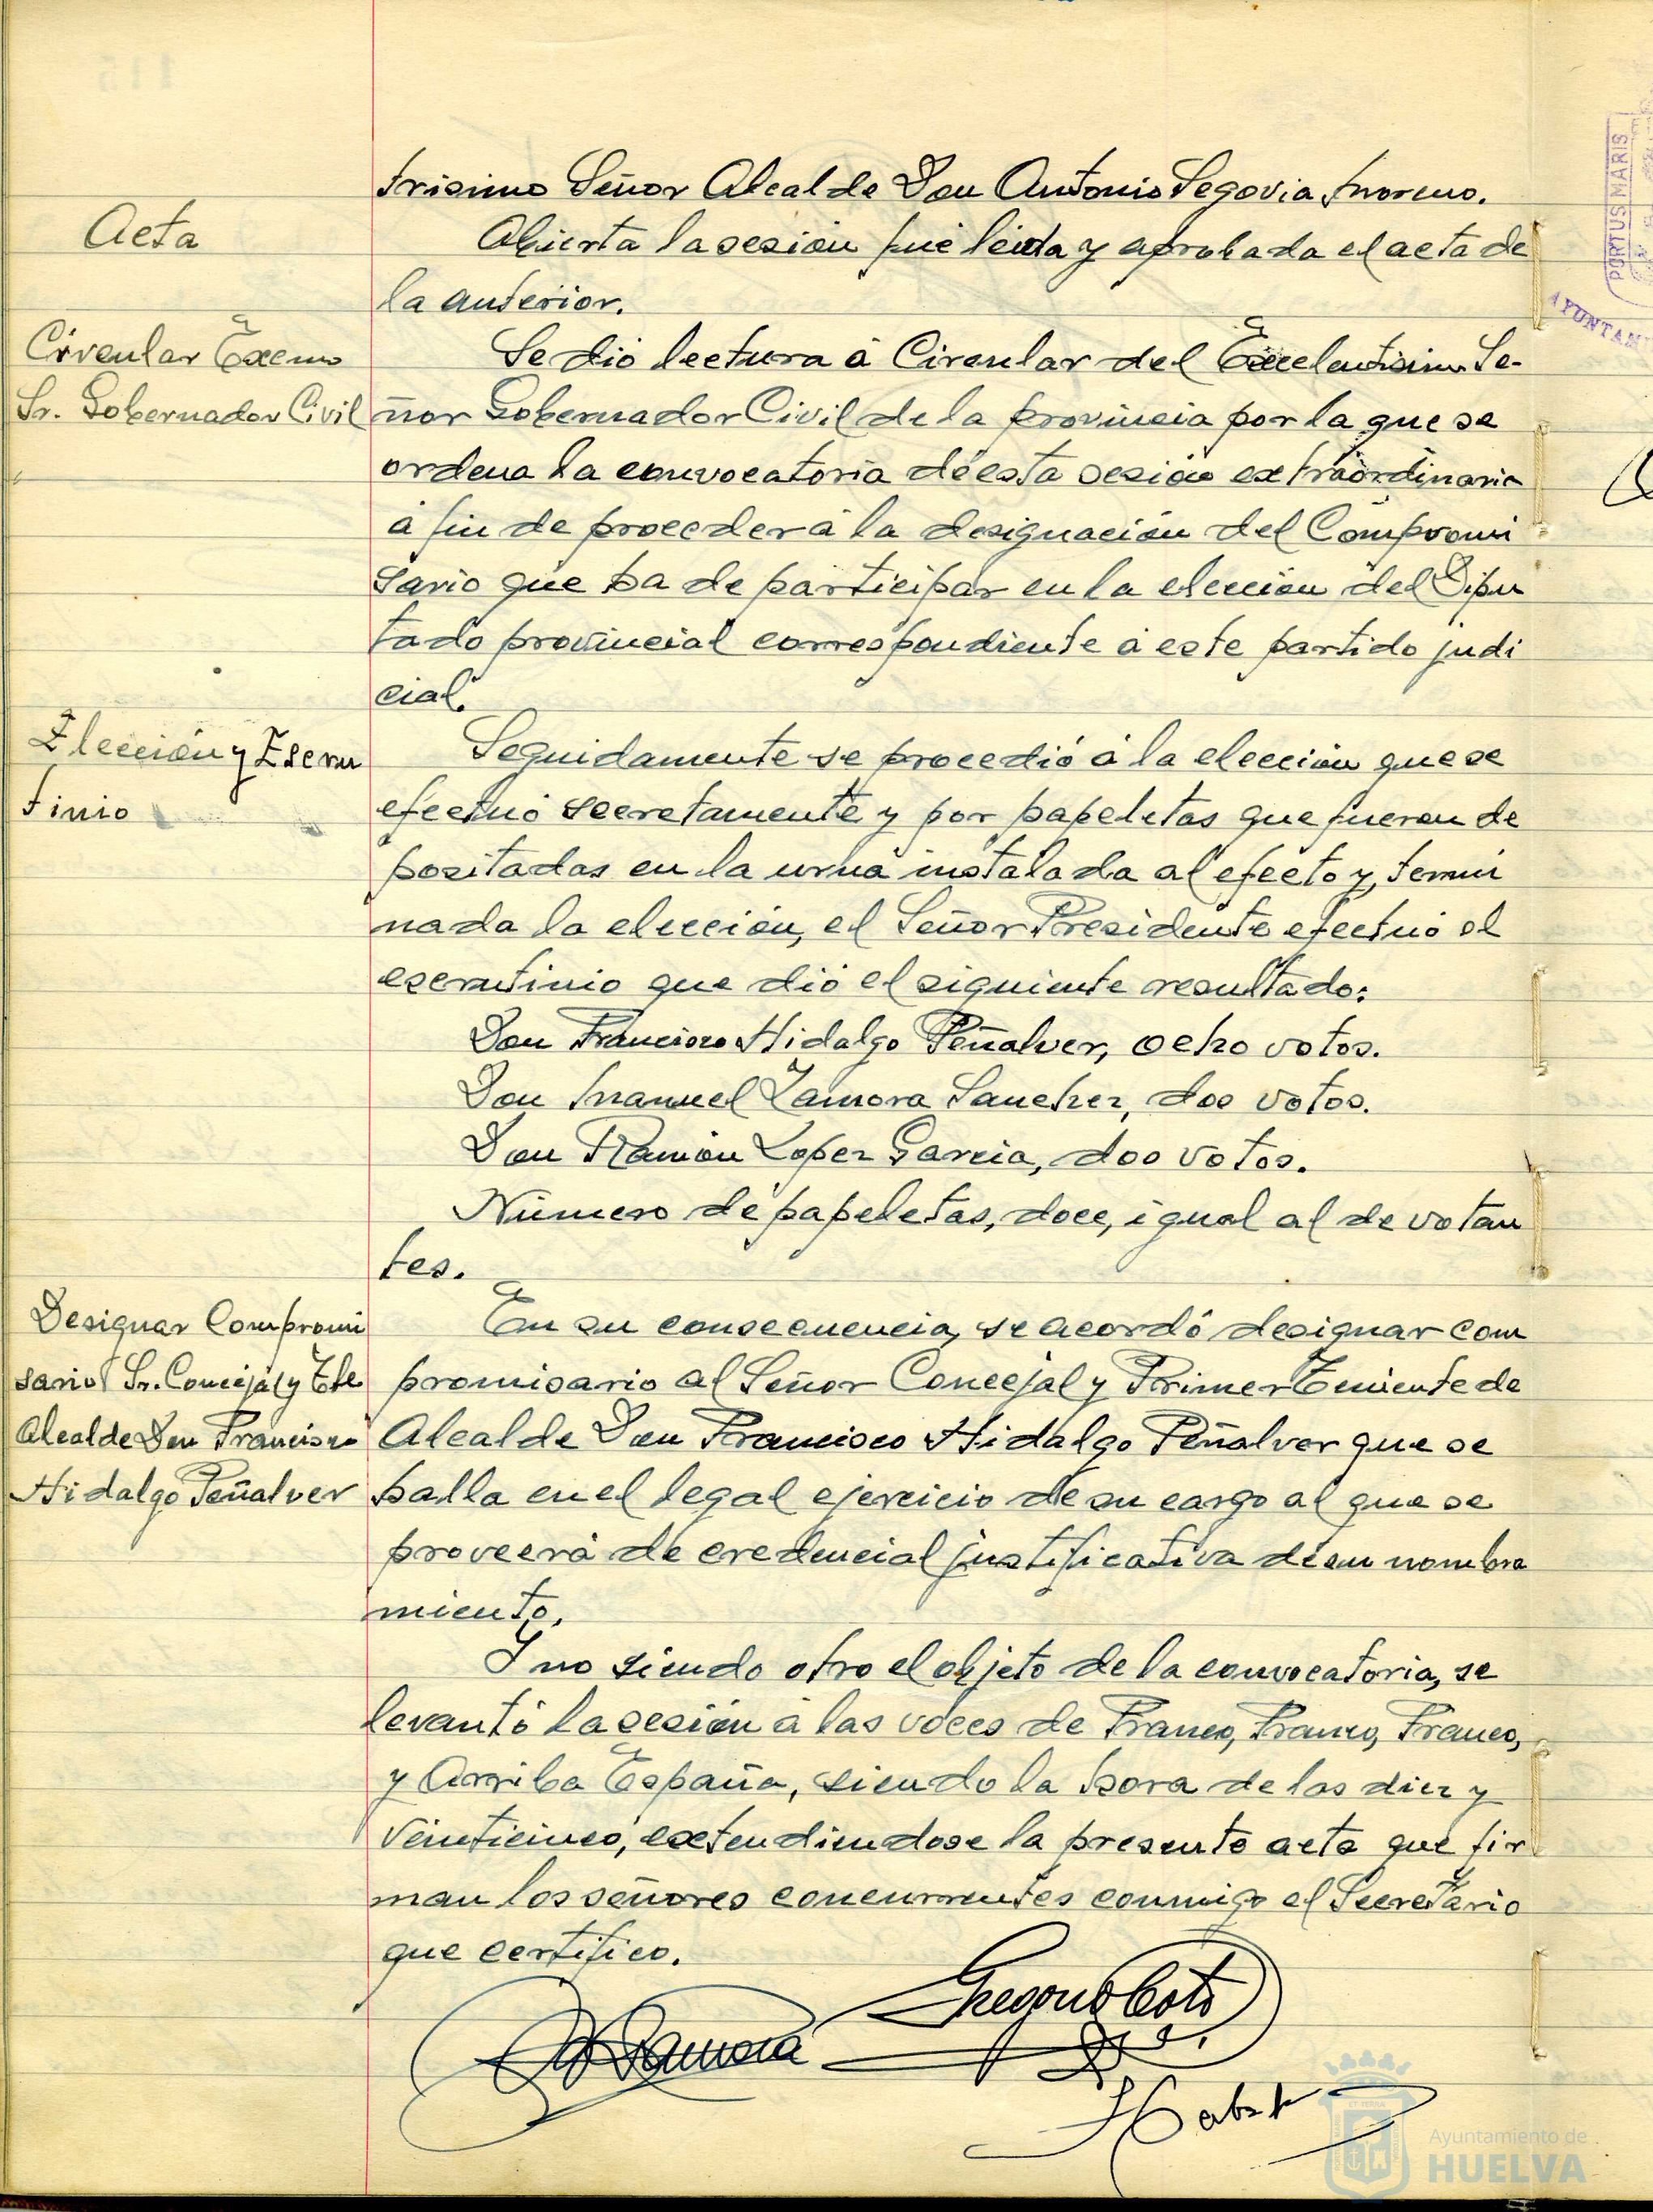 trisimo Señor Alcalde Don Antonio Segovia Moreno.
Acta
Abierta la sesión fué leida y aprobada el acta de
la anterior.
Circular Excmo
Sr. Gobernador Civil
Se dió lectura á Circular del Excelentisimo Se-
ñor Gobernador Civil de la provincia por la que se
ordena la convocatoria de esta sesión extraordinaria
á fin de proceder á la designación del Compromi
sario que ha de participar en la elección del Dipu
tado provincial correspondiente á este partido judi
cial.
Elección y Escru
tinio
Seguidamente se procedió á la elección que se
efectuó secretamente y por papeletas que fueron de
positadas en la urna instalada al efecto y, termi
nada la elección, el Señor Presidente efectuó el
escrutinio que dió el siguiente resultado:
Don Francisco Hidalgo Peñalver, ocho votos.
Don Manuel Zamora Sanchez, dos votos.
Don Ramón Lopez Garcia, dos votos.
Número de papeletas, doce, igual al de votan
tes.
Designar Compromi
sario Sr. Concejal y Tte
Alcalde Don Francisco
Hidalgo Peñalver
En su consecuencia, se acordó designar com
promisario al Señor Concejal y Primer Teniente de
Alcalde Don Francisco Hidalgo Peñalver que se
halla en el legal ejercicio de su cargo al que se
proveerá de credencial justificativa de su nombra
miento.
Y no siendo otro el objeto de la convocatoria, se
levantó la sesión á las voces de Franco, Franco, Franco,
y Arriba España, siendo la hora de las diez y
veinticinco, extendiendose la presente acta que fir
man los señores concurrentes conmigo el Secretario
que certifico.
Gregorio Coto
Zamora
PORTUS MARIS
AYUNTAM
Ayuntamiento de
HUELVA